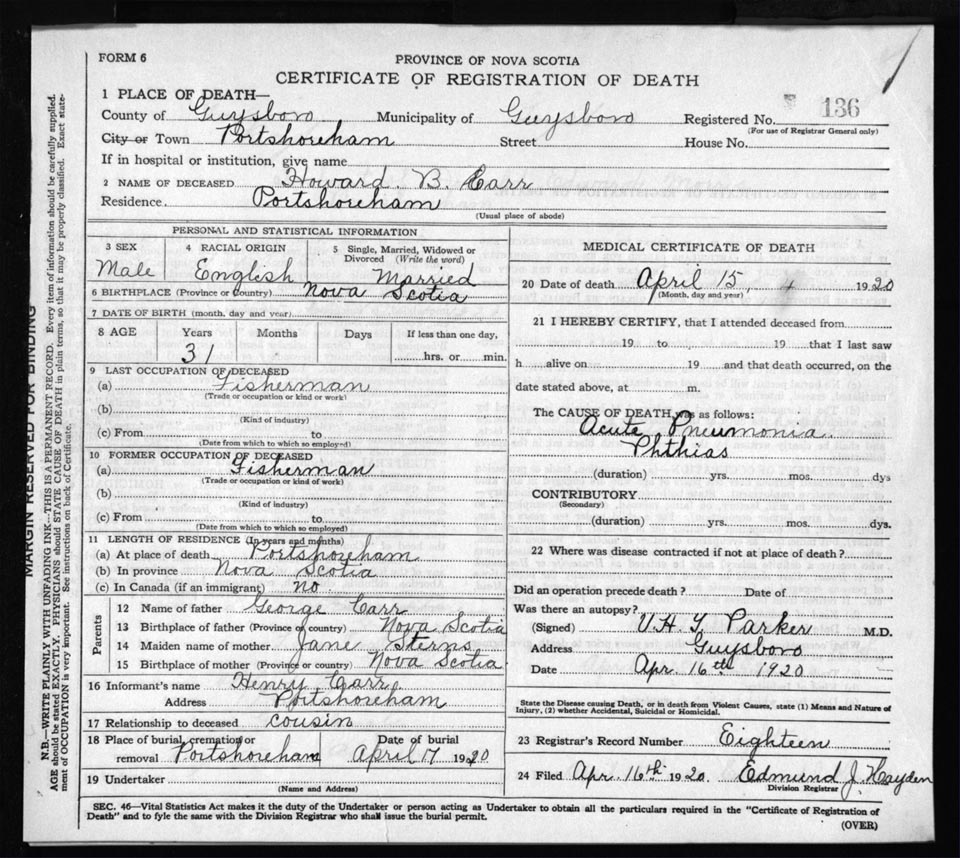 FORM 6
PROVINCE OF NOVA SCOTIA
CERTIFICATE OF REGISTRATION OF DEATH
1 PLACE OF DEATH—
County of Guysboro Municipality of Guysboro Registered No. 136
(For use of Registrar General only)
City or Town Portshoreham Street House No.
If in hospital or institution, give name
2 NAME OF DECEASED Howard. B. Carr
Residence. Portshoreham
(Usual place of abode)
PERSONAL AND STATISTICAL INFORMATION
3 SEX 4 RACIAL ORIGIN 5 Single, Married, Widowed or Divorced (Write the word)
Male English Married
6 BIRTHPLACE (Province or Country) Nova Scotia
7 DATE OF BIRTH (month, day and year)
8 AGE Years Months Days If less than one day,
31 hrs. or min.
9 LAST OCCUPATION OF DECEASED
(a) Fisherman
(Trade or occupation or kind or work)
(b)
(Kind of industry)
(c) From to
(Date from which to which so employed)
10 FORMER OCCUPATION OF DECEASED
(a) Fisherman
(Trade or occupation or kind of work)
(b)
(Kind of industry)
(c) From to
(Date from which to which so employed)
11 LENGTH OF RESIDENCE (In years and months)
(a) At place of death Portshoreham
(b) In province Nova Scotia
(c) In Canada (if an immigrant) no
Parents
12 Name of father George Carr
13 Birthplace of father (Province or country) Nova Scotia
14 Maiden name of mother Jane Sterns
15 Birthplace of mother (Province or country) Nova Scotia
16 Informant's name Henry Carr
Address Portshoreham
17 Relationship to deceased cousin
18 Place of burial, cremation or removal Portshoreham Date of burial April 17 1920
19 Undertaker
(Name and Address)
MEDICAL CERTIFICATE OF DEATH
20 Date of death April 15, 4 1920
(Month, day and year)
21 I HEREBY CERTIFY, that I attended deceased from
19 to 19 that I last saw
h alive on 19 and that death occurred, on the
date stated above, at m.
The CAUSE OF DEATH was as follows:
Acute Pneumonia
Phthias
(duration) yrs. mos. dys
CONTRIBUTORY
(Secondary)
(duration) yrs. mos. dys.
22 Where was disease contracted if not at place of death?
Did an operation precede death? Date of
Was there an autopsy?
(Signed) Parker M.D.
Address Guysboro
Date Apr. 16th 1920
State the Disease causing Death, or in death from Violent Causes, state (1) Means and Nature of
Injury, (2) whether Accidental, Suicidal or Homicidal.
23 Registrar's Record Number Eighteen
24 Filed Apr. 16th 1920. Edmund J. Hayden
Division Registrar
SEC. 46—Vital Statistics Act makes it the duty of the Undertaker or person acting as Undertaker to obtain all the particulars required in the "Certificate of Registration of
Death" and to fyle the same with the Division Registrar who shall issue the burial permit.
(OVER)
MARGIN RESERVED FOR BINDING
N.B.—WRITE PLAINLY WITH UNFADING INK—THIS IS A PERMANENT RECORD. Every item of information should be carefully supplied.
AGE should be stated EXACTLY. PHYSICIANS should STATE CAUSE OF DEATH in plain terms, so that it may be properly classified. Exact state-
ment of OCCUPATION is very important. See instructions on back of Certificate.